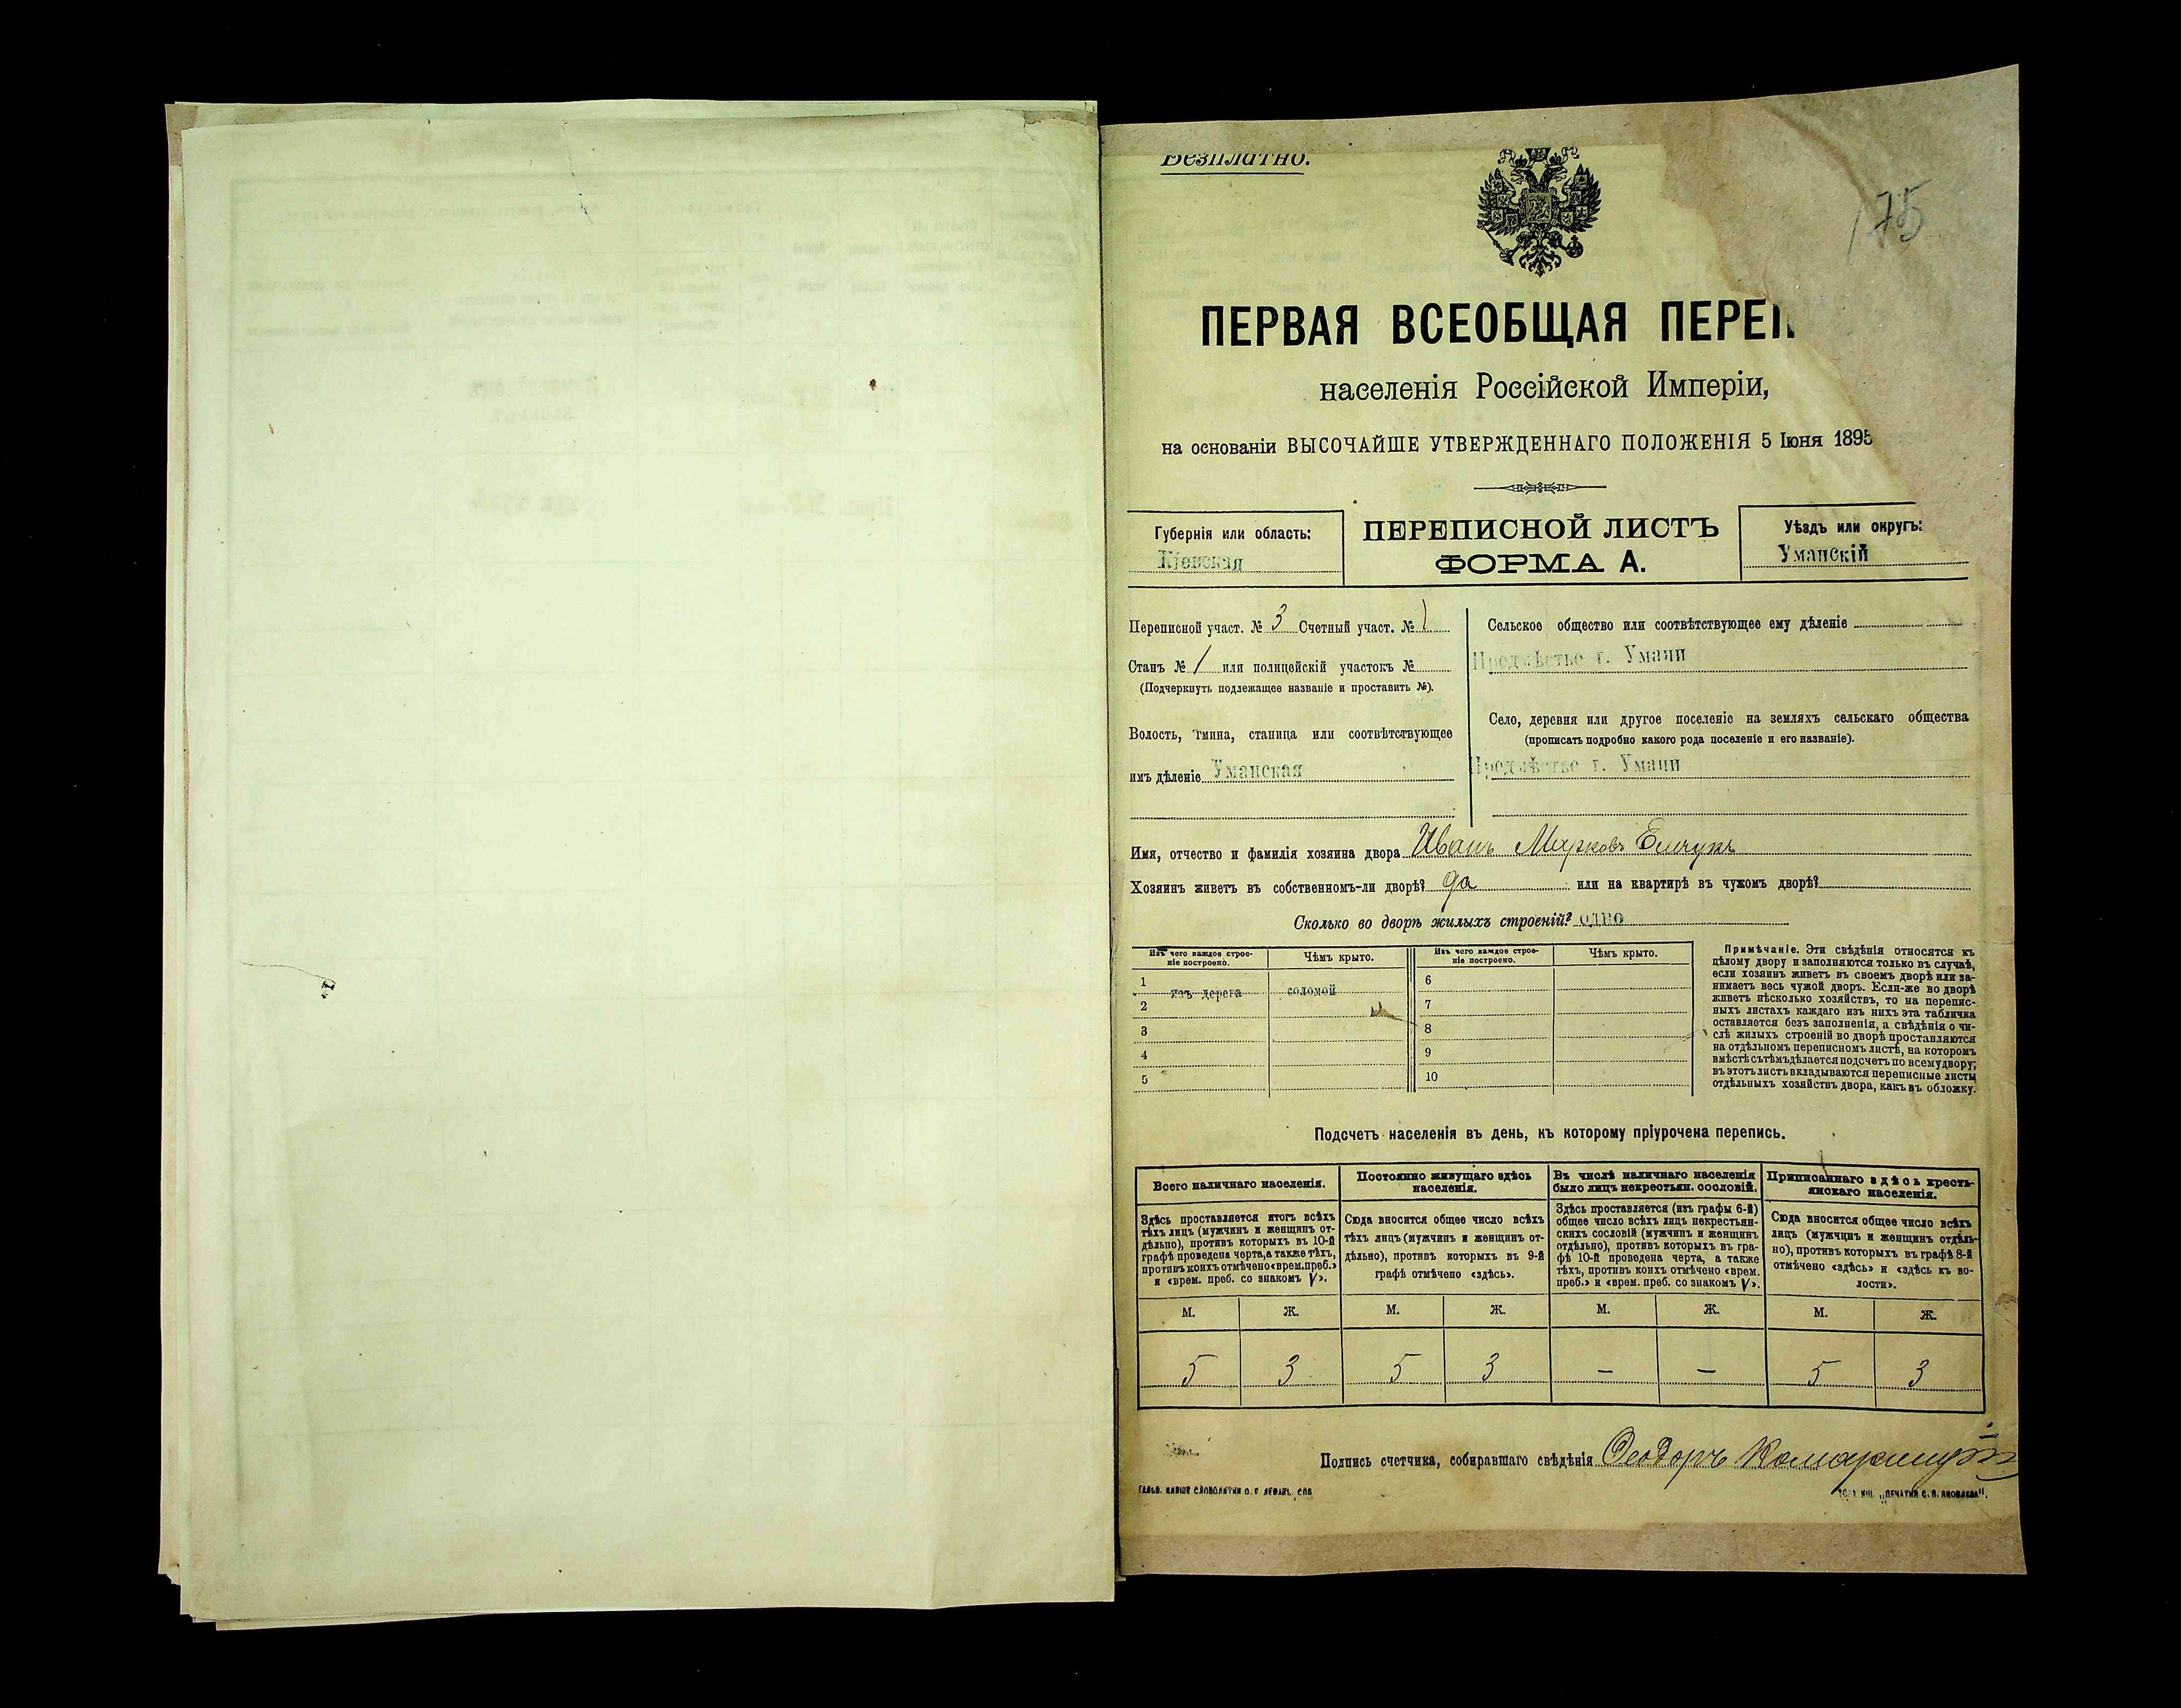 Безплатно.
175
ПЕРВАЯ ВСЕОБЩАЯ ПЕРЕП
населенія Россійской Имперіи,
на основаніи ВЫСОЧАЙШЕ УТВЕРЖДЕННАГО ПОЛОЖЕНІЯ 5 Іюня 1895
Губернія или область:
Кіевская
ПЕРЕПИСНОЙ ЛИСТЪ
ФОРМА А.
Уѣздъ или округъ:
Уманскій
Переписной участ. № 3 Счетный участ. № 1
Станъ № 1 или полицейскій участокъ №
(Подчеркнуть подлежащее названіе и проставить №).
Волость, гмина, станица или соотвѣтствующее
имъ дѣленіе Уманская
Сельское общество или соотвѣтствующее ему дѣленіе
Предмѣстье г. Умани
Село, деревня или другое поселеніе на земляхъ сельскаго общества
(прописать подробно какого рода поселеніе и его названіе).
Предмѣстье г. Умани
Имя, отчество и фамилія хозяина двора Иванъ Марковъ
Хозяинъ живетъ въ собственномъ-ли дворѣ? да или на квартирѣ въ чужомъ дворѣ?
Сколько во дворѣ жилыхъ строеній? одно
Изъ чего каждое строе-
ніе построено.
Чѣмъ крыто.
Изъ чего каждое строе-
ніе построено.
Чѣмъ крыто.
1 изъ дерева соломой
2
3
4
5
6
7
8
9
10
Примѣчаніе. Эти свѣдѣнія относятся къ
цѣлому двору и заполняются только въ случаѣ,
если хозяинъ живетъ въ своемъ дворѣ или за-
нимаетъ весь чужой дворъ. Если-же во дворѣ
живетъ нѣсколько хозяйствъ, то на перепис-
ныхъ листахъ каждаго изъ нихъ эта табличка
оставляется безъ заполненія, а свѣдѣнія о чи-
слѣ жилыхъ строеній во дворѣ проставляются
на отдѣльномъ переписномъ листѣ, на которомъ
вмѣстѣ съ тѣмъ дѣлается подсчетъ по всему двору;
въ этотъ листъ вкладываются переписные листы
отдѣльныхъ хозяйствъ двора, какъ въ обложку.
Подсчетъ населенія въ день, къ которому пріурочена перепись.
Всего наличнаго населенія.
Здѣсь проставляется итогъ всѣхъ
тѣхъ лицъ (мужчинъ и женщинъ от-
дѣльно), противъ которыхъ въ 10-й
графѣ проведена черта, а также тѣхъ,
противъ коихъ отмѣчено «врем. преб.»
и «врем. преб. со знакомъ V».
М. Ж.
5 3
Постоянно живущаго здѣсь
населенія.
Сюда вносится общее число всѣхъ
тѣхъ лицъ (мужчинъ и женщинъ от-
дѣльно), противъ которыхъ въ 9-й
графѣ отмѣчено «здѣсь».
М. Ж.
5 3
Въ числѣ наличнаго населенія
было лицъ некрестьян. сословій.
Здѣсь проставляется (изъ графы 6-й)
общее число всѣхъ лицъ некрестьян-
скихъ сословій (мужчинъ и женщинъ
отдѣльно), противъ которыхъ въ гра-
фѣ 10-й проведена черта, а также
тѣхъ, противъ коихъ отмѣчено «врем.
преб.» и «врем. преб. со знакомъ V».
М. Ж.
– –
Приписаннаго здѣсь кресть-
янскаго населенія.
Сюда вносится общее число всѣхъ
лицъ (мужчинъ и женщинъ отдѣль-
но), противъ которыхъ въ графѣ 8-й
отмѣчено «здѣсь» и «здѣсь къ во-
лости».
М. Ж.
5 3
Подпись счетчика, собиравшаго свѣдѣнія Ѳеодоръ